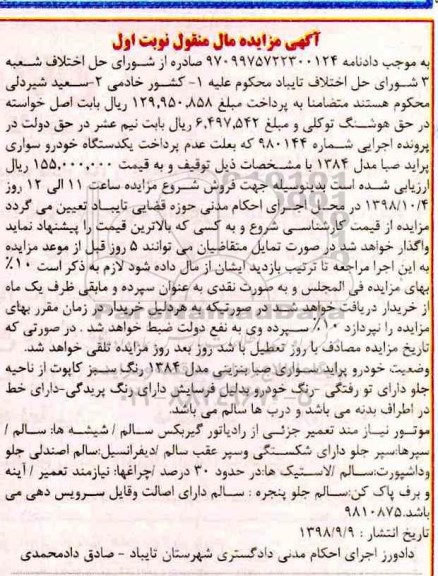 آگهی مزایده مال منقول نوبت اول
به موجب دادنامه ۹۷۰۹۹۷۵۷۲۲۳۰۰۱۲۴ صادره از شورای حل اختلاف شعبه
۳ شورای حل اختلاف تایباد محکوم علیه ۱- کشور خادمی ۲-سعید شیردلی
محکوم هستند متضامنا به پرداخت مبلغ ۱۲۹,۹۵۰,۸۵۸ ریال بابت اصل خواسته
در حق هوشنگ توکلی و مبلغ ۶,۴۹۷,۵۴۲ ریال بابت نیم عشر در حق دولت در
پرونده اجرایی شماره ۹۸۰۱۴۴ که بعلت عدم پرداخت یکدستگاه خودرو سواری
پراید صبا مدل ۱۳۸۴ با مشخصات ذیل توقیف و به قیمت ۱۵۵,۰۰۰,۰۰۰ ریال
ارزیابی شده است بدینوسیله جهت فروش شروع مزایده ساعت ۱۱ الی ۱۲ روز
۱۳۹۸/۱۰/۴ در محل اجرای احکام مدنی حوزه قضایی تایباد تعیین می گردد
مزایده از قیمت کارشناسی شروع و به کسی که بالاترین قیمت را پیشنهاد نماید
واگذار خواهد شد در صورت تمایل متقاضیان می توانند ۵ روز قبل از موعد مزایده
به این اجرا مراجعه تا ترتیب بازدید ایشان از مال داده شود لازم به ذکر است ۱۰٪
بهای مزایده فی المجلس و به صورت نقدی به عنوان سپرده و مابقی ظرف یک ماه
از خریدار دریافت خواهد شد در صورتیکه به هردلیل خریدار در زمان مقرر بهای
مزایده را نپردازد ۱۰٪ سپرده وی به نفع دولت ضبط خواهد شد . در صورتی که
تاریخ مزایده مصادف با روز تعطیل با شد روز بعد روز مزایده تلقی خواهد شد.
وضعیت خودرو پراید سواری صبا بنزینی مدل ۱۳۸۴ رنگ سبز کاپوت از ناحیه
جلو دارای تو رفتگی -رنگ خودرو بدلیل فرسایش دارای رنگ پریدگی-دارای خط
در اطراف بدنه می باشد و درب ها سالم می باشد.
موتور نیاز مند تعمیر جزئی از رادیاتور گیربکس سالم / شیشه ها: سالم /
سپرها:سپر جلو دارای شکستگی وسپر عقب سالم /دیفرانسیل:سالم اصندلی جلو
وداشپورت:سالم /لاستیک ها:در حدود ۳۰ درصد /چراغها: نیازمند تعمیر / آینه
و برف پاک کن:سالم جلو پنجره : سالم دارای اصالت وقابل سرویس دهی می
باشد.۹۸۱۰۸۷۵
تاریخ انتشار : ۱۳۹۸/۹/۹
دادورز اجرای احکام مدنی دادگستری شهرستان تایباد - صادق دادمحمدی